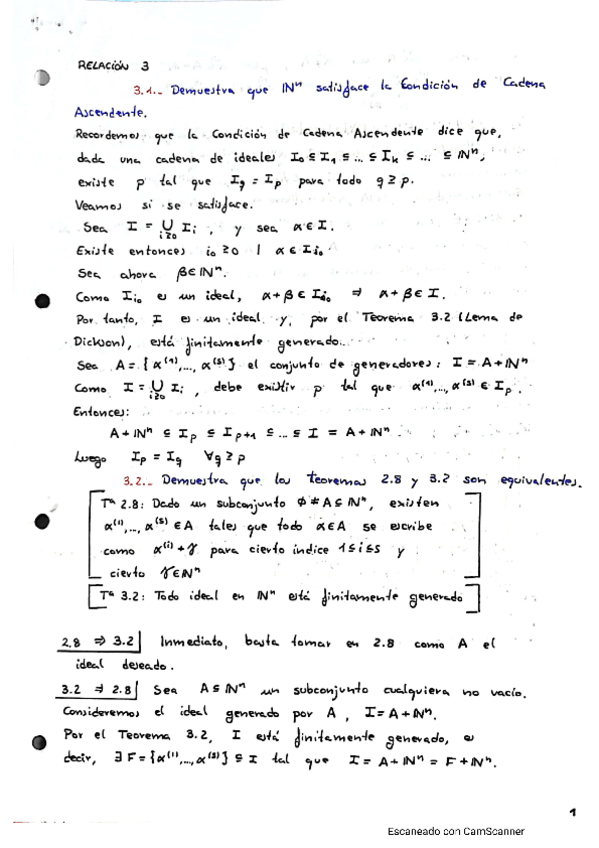 RELACIÓN 3
3.1.- Demuestra que ℕⁿ satisface la Condición de Cadena
Ascendente.
Recordemos que la Condición de Cadena Ascendente dice que,
dada una cadena de ideales I₀ ⊆ I₁ ⊆ ... ⊆ Iₖ ⊆ ... ⊆ ℕⁿ,
existe p tal que I_q = I_p para todo q ≥ p.
Veamos si se satisface.
Sea I = ⋃_{i≥0} I_i , y sea α ∈ I.
Existe entonces i₀ ≥ 0 | α ∈ I_{i₀}.
Sea ahora β ∈ ℕⁿ.
Como I_{i₀} es un ideal, α + β ∈ I_{i₀} ⇒ α + β ∈ I.
Por tanto, I es un ideal y, por el Teorema 3.2 (Lema de
Dickson), está finitamente generado.
Sea A = {α⁽¹⁾,..., α⁽ˢ⁾} el conjunto de generadores: I = A + ℕⁿ
Como I = ⋃_{i≥0} I_i , debe existir p tal que α⁽¹⁾,..., α⁽ˢ⁾ ∈ I_p.
Entonces:
A + ℕⁿ ⊆ I_p ⊆ I_{p+1} ⊆ ... ⊆ I = A + ℕⁿ.
Luego I_p = I_q ∀q ≥ p
3.2.- Demuestra que los teoremas 2.8 y 3.2 son equivalentes.
Tª 2.8: Dado un subconjunto ∅ ≠ A ⊆ ℕⁿ, existen
α⁽¹⁾,..., α⁽ˢ⁾ ∈ A tales que todo α ∈ A se escribe
como α⁽ⁱ⁾ + γ para cierto índice 1 ≤ i ≤ s y
cierto γ ∈ ℕⁿ
Tª 3.2: Todo ideal en ℕⁿ está finitamente generado
2.8 ⇒ 3.2 Inmediato, basta tomar en 2.8 como A el
ideal deseado.
3.2 ⇒ 2.8 Sea A ⊆ ℕⁿ un subconjunto cualquiera no vacío.
Consideremos el ideal generado por A , I = A + ℕⁿ.
Por el Teorema 3.2, I está finitamente generado, es
decir, ∃ F = {α⁽¹⁾,..., α⁽ˢ⁾} ⊆ I tal que I = A + ℕⁿ = F + ℕⁿ.
1
Escaneado con CamScanner